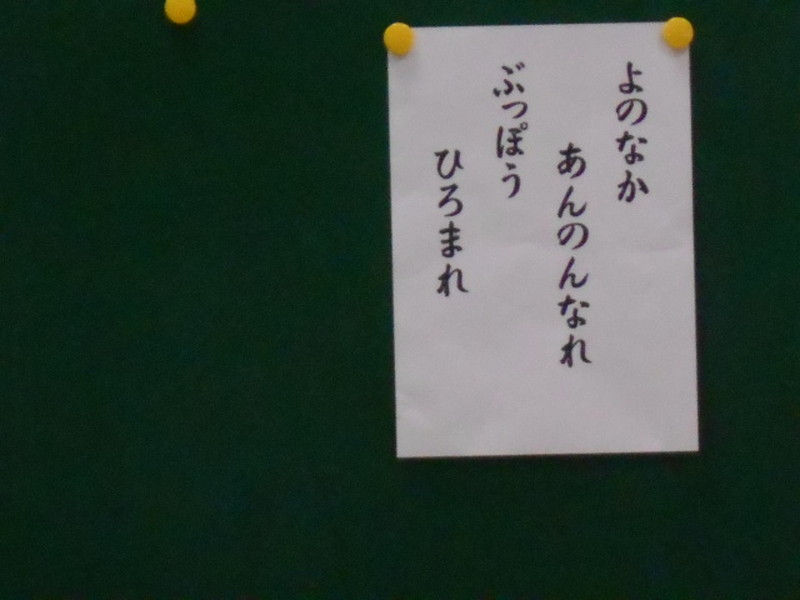 よのなか
あんのんなれ
ぶっぽう
ひろまれ